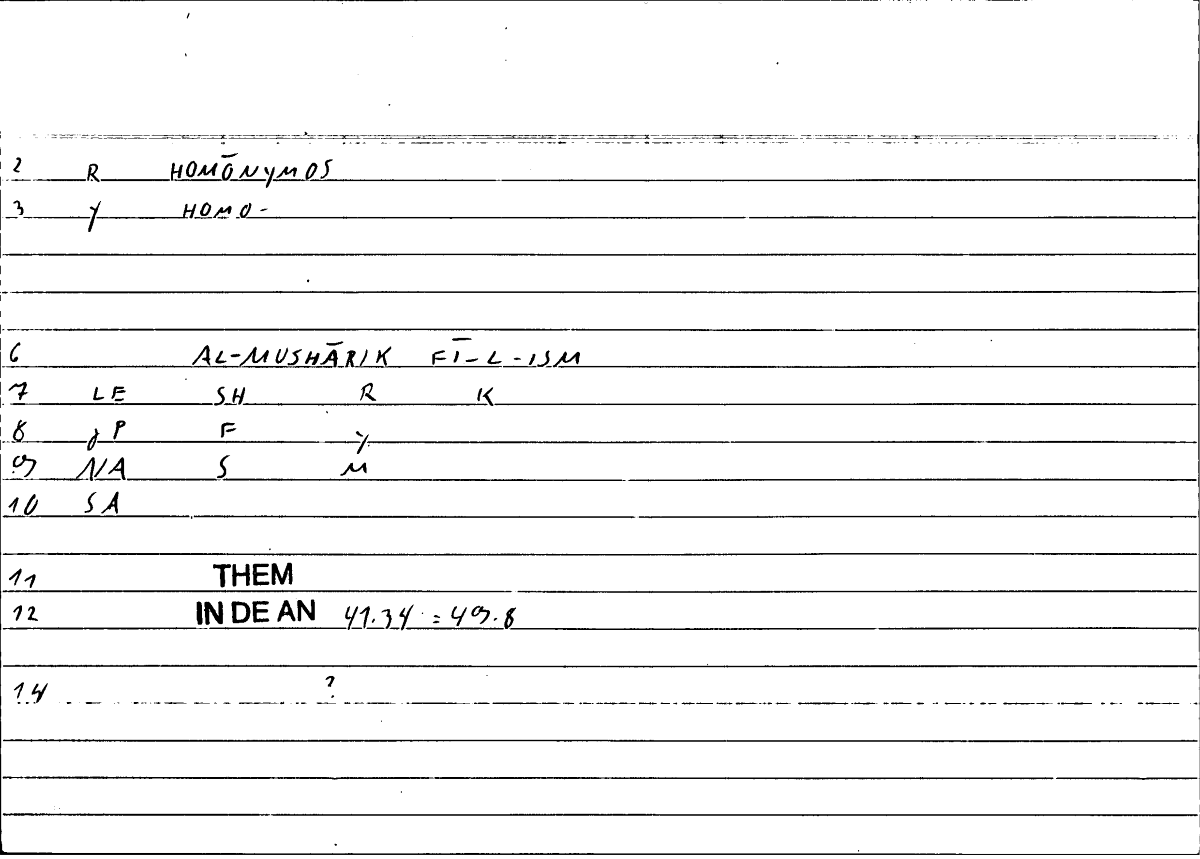 2 R HOMŌNYMOS
3 Y HOMO-
6 AL-MUSHĀRIK FĪ-L-ISM
7 LE SH R K
8 JP F Y
9 NA S M
10 SA
11 THEM
12 IN DE AN 41.34 = 49.8
14 ?